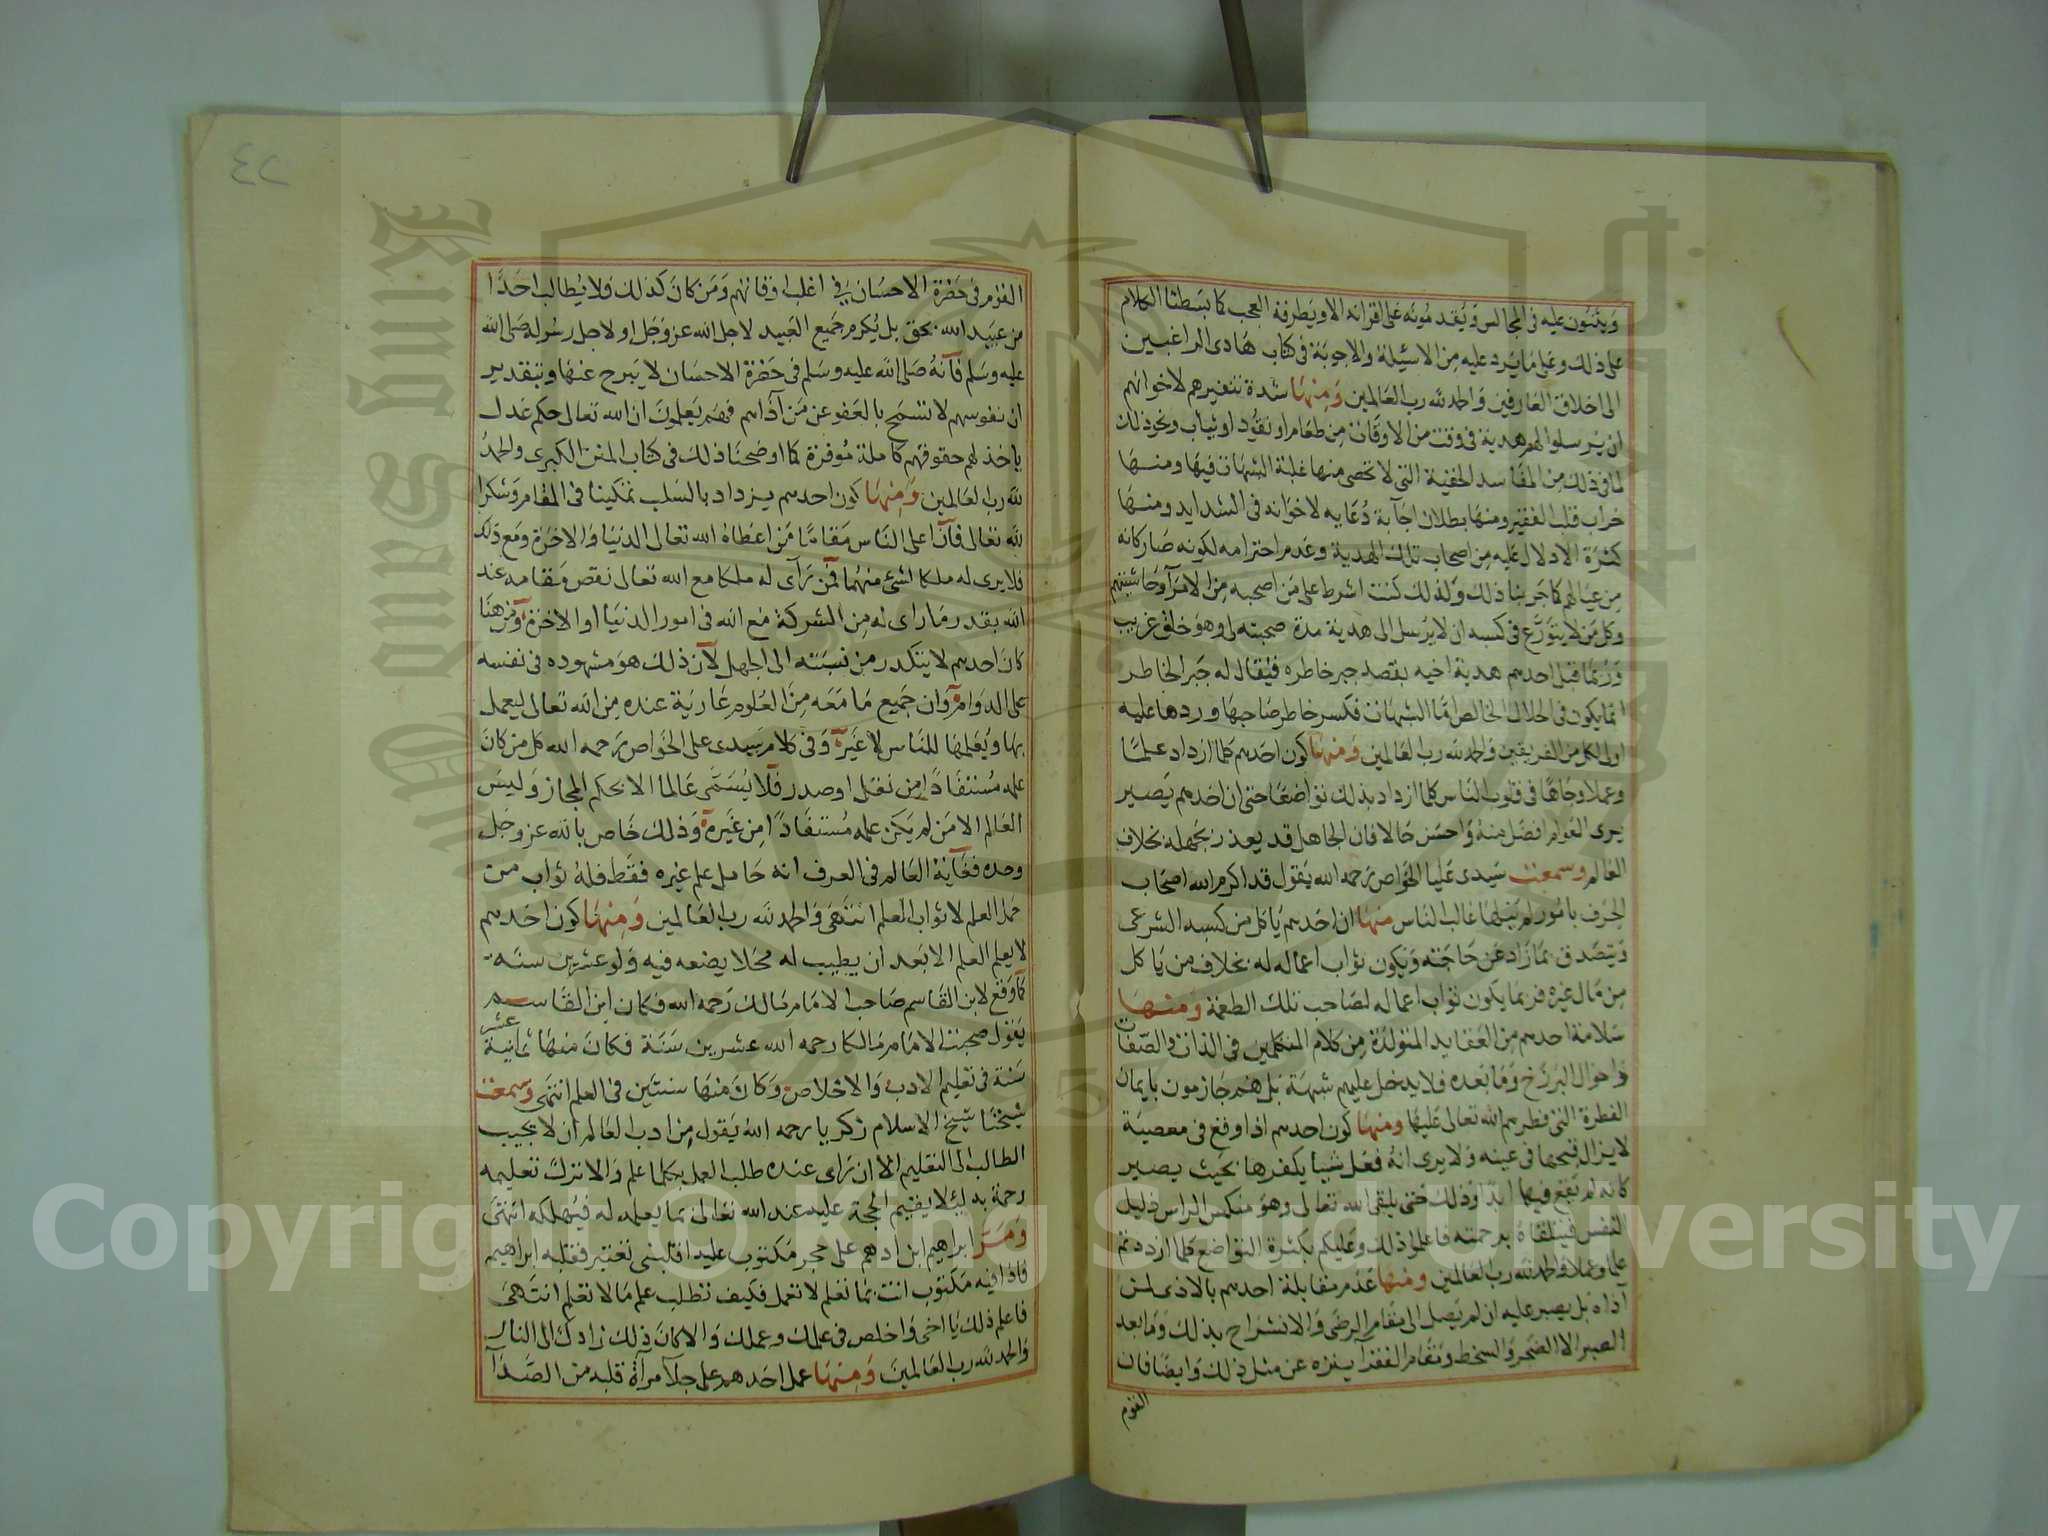 ويثنون عليه في المجالس ويقدمونه على اقرانه الا ويطرقه العجب كما بسطنا الكلام
على ذلك وعلى ما يرد عليه من الاسئلة والاجوبة في كتاب هادى الراغبين
الى اخلاق العارفين والحمد لله رب العالمين ومنها شدة تنفيرهم لاخوانهم
ان يرسلوا لهم هدية في وقت من الاوقات من طعام او نقود او ثياب ونحو ذلك
لما في ذلك من المفاسد الخفية التى لا تحصى منها غلبة الشبهات فيها ومنها
خراب قلب الفقير ومنها بطلان اجابة دعايه لاخوانه في الشدايد ومنها
كثرة الادلال عليه من اصحاب تلك الهدية وعدم احترامه لكونه صار كانه
من عيالهم كما جربنا ذلك ولذلك كنت اشرط على من اصحبه من الامرآ وحاشيتهم
وكل من لا يتورع في كسبه ان لا يرسل الى هدية مدة صحبته لى وهو خلق غريب
وربما قبل احدهم هدية اخيه بقصد جبر خاطره فيقال له جبر الخاطر
انما يكون في الحلال الخالص اما الشبهات فكسر خاطر صاحبها وردها عليه
اولى لكل من الفريقين والحمد لله رب العالمين ومنها كون احدهم كلما ازداد علما
وعملا وجاها في قلوب الناس كلما ازداد بذلك تواضعا حتى ان احدهم يصير
يرى العوام افضل منه واحسن حالا فان الجاهل قد يعذر بجهله بخلاف
العالم وسمعت سيدى عليا الخواص رحمه الله يقول قد اكرم الله اصحاب
الحرف بامور لم ينلها غالب الناس منها ان احدهم ياكل من كسبه الشرعى
ويتصدق بما زاد عن حاجته ويكون ثواب اعماله له بخلاف من ياكل
من مال غيره فربما يكون ثواب اعماله لصاحب تلك الطعمة ومنها
سلامة احدهم من العقايد المتولدة من كلام المتكلمين في الذات والصفات
واحوال البرزخ وما بعده فلا يدخل عليهم شبهة بل هم جازمون بايمان
الفطرة التى فطرهم الله تعالى عليها ومنها كون احدهم اذا وقع في معصية
لا يزال قبحها في عينه ولا يرى انه فعل شيا يكفرها بحيث يصير
كانه لم يقع فيها ابدا وذلك حتى يلقى الله تعالى وهو منكس الراس ذليل
النفس فيتلقاه برحمته فاعلموا ذلك وعليكم بكثرة التواضع كلما ازددتم
علما وعملا والحمد لله رب العالمين ومنها عدم مقابلة احدهم بالاذى لمن
آذاه بل يصبر عليه ان لم يصل الى مقام الرضى والانشراح بذلك وما بعد
الصبر الا الضجر والسخط ومقام الفقرآ ينزه عن مثل ذلك وايضا فان
القوم
٤٢
القوم في حضرة الاحسان في اغلب اوقاتهم ومن كان كذلك فلا يطالب احدا
من عبيد الله بحق بل يكرم جميع العبيد لاجل الله عز وجل او لاجل رسوله صلى الله
عليه وسلم فانه صلى الله عليه وسلم في حضرة الاحسان لا يبرح عنها وبتقدير
ان نفوسهم لا تسمح بالعفو عن من آذاهم فهم يعلمون ان الله تعالى حكم عدل
ياخذ لهم حقوقهم كاملة موفرة كما اوضحنا ذلك في كتاب المنن الكبرى والحمد
لله رب العالمين ومنها كون احدهم يزداد بالسلب تمكينا في المقام وشكرا
لله تعالى فان اعلى الناس مقاما من اعطاه الله تعالى الدنيا والاخرة ومع ذلك
فلا يرى له ملكا لشئ منهما فمن رآى له ملكا مع الله تعالى نقص مقامه عند
الله بقدر ما راى له من الشركة مع الله في امور الدنيا او الاخرة ومن هنا
كان احدهم لا يتكدر من نسبته الى الجهل لان ذلك هو مشهوده في نفسه
على الدوام وان جميع ما معه من العلوم عارية عنده من الله تعالى ليعمل
بها ويعلمها للناس لا غير وفي كلام سيدى على الخواص رحمه الله كل من كان
علمه مستفادا من نقل او صدر فلا يسمى عالما الا بحكم المجاز وليس
العالم الا من لم يكن علمه مستفادا من غيره وذلك خاص بالله عز وجل
وحده فغاية العالم في العرف انه حامل علم غيره فقط فله ثواب من
حمل العلم لا ثواب العلم انتهى والحمد لله رب العالمين ومنها كون احدهم
لا يعلم العلم الا بعد ان يطيب له محلا يضعه فيه ولو عشرين سنة
كما وقع لابن القاسم صاحب الامام مالك رحمه الله فكان ابن القاسم
يقول صحبت الامام مالكا رحمه الله عشرين سنة فكان منها ثمانية عشر
سنة في تعليم الادب والاخلاص وكان منها سنتين في العلم انتهى وسمعت
شيخنا شيخ الاسلام زكريا رحمه الله يقول من ادب العالم ان لا يجيب
الطالب الى التعليم الا ان راى عنده طلب العمل بكلما علم والا ترك تعليمه
رحمة به ليلا يقيم الحجة عليه عند الله تعالى بما يعلمه له فيهلكه انتهى
ومر ابراهيم ابن ادهم على حجر مكتوب عليه اقلبنى تعتبر فقلبه ابراهيم
فاذا فيه مكتوب انت بما تعلم لا تعمل فكيف تطلب علم ما لا تعلم انتهى
فاعلم ذلك يا اخى واخلص في علمك وعملك والا كان ذلك زادك الى النار
والحمد لله رب العالمين ومنها عمل احدهم على جلآ مرآة قلبه من الصدآ
Copyright © King Saud University